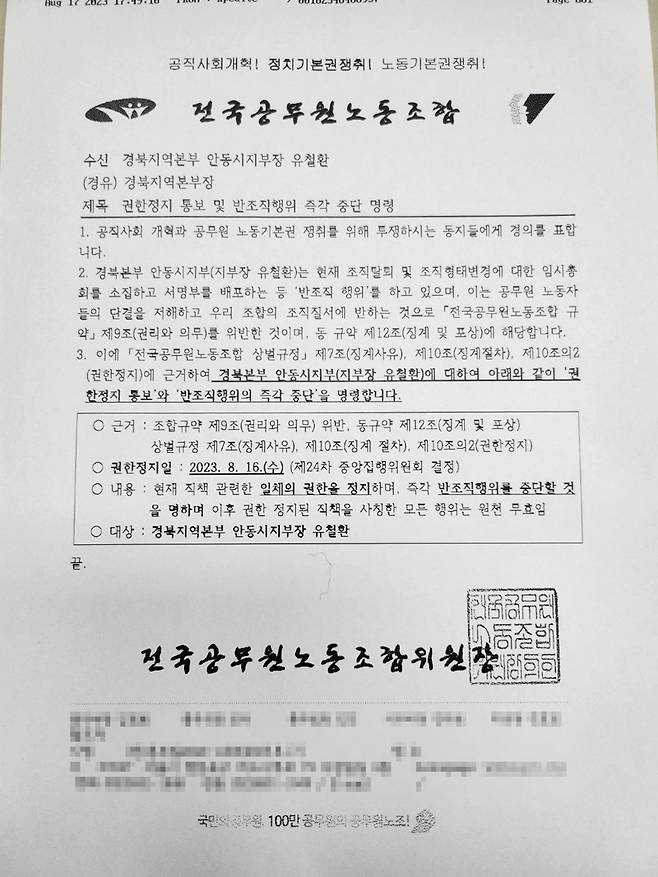 Aug 17 2023 17:49:16
Page 001
공직사회개혁! 정치기본권쟁취! 노동기본권쟁취!
전국공무원노동조합
수신 경북지역본부 안동시지부장 유철환
(경유) 경북지역본부장
제목 권한정지 통보 및 반조직행위 즉각 중단 명령
1. 공직사회 개혁과 공무원 노동기본권 쟁취를 위해 투쟁하시는 동지들에게 경의를 표합
니다.
2. 경북본부 안동시지부(지부장 유철환)는 현재 조직탈퇴 및 조직형태변경에 대한 임시총
회를 소집하고 서명부를 배포하는 등 '반조직 행위'를 하고 있으며, 이는 공무원 노동자
들의 단결을 저해하고 우리 조합의 조직질서에 반하는 것으로 「전국공무원노동조합 규
약」제9조(권리와 의무)를 위반한 것이며, 동 규약 제12조(징계 및 포상)에 해당합니다.
3. 이에 「전국공무원노동조합 상벌규정」제7조(징계사유), 제10조(징계절차), 제10조의2
(권한정지)에 근거하여 경북본부 안동시지부(지부장 유철환)에 대하여 아래와 같이 '권
한정지 통보'와 '반조직행위의 즉각 중단'을 명령합니다.
○ 근거 : 조합규약 제9조(권리와 의무) 위반, 동규약 제12조(징계 및 포상)
상벌규정 제7조(징계사유), 제10조(징계 절차), 제10조의2(권한정지)
○ 권한정지일 : 2023. 8. 16.(수) (제24차 중앙집행위원회 결정)
○ 내용 : 현재 직책 관련한 일체의 권한을 정지하며, 즉각 반조직행위를 중단할 것
을 명하며 이후 권한 정지된 직책을 사칭한 모든 행위는 원천 무효임
○ 대상 : 경북지역본부 안동시지부장 유철환
끝.
전국공무원노동조합위원장
국민의 공무원, 100만 공무원의 공무원노조!